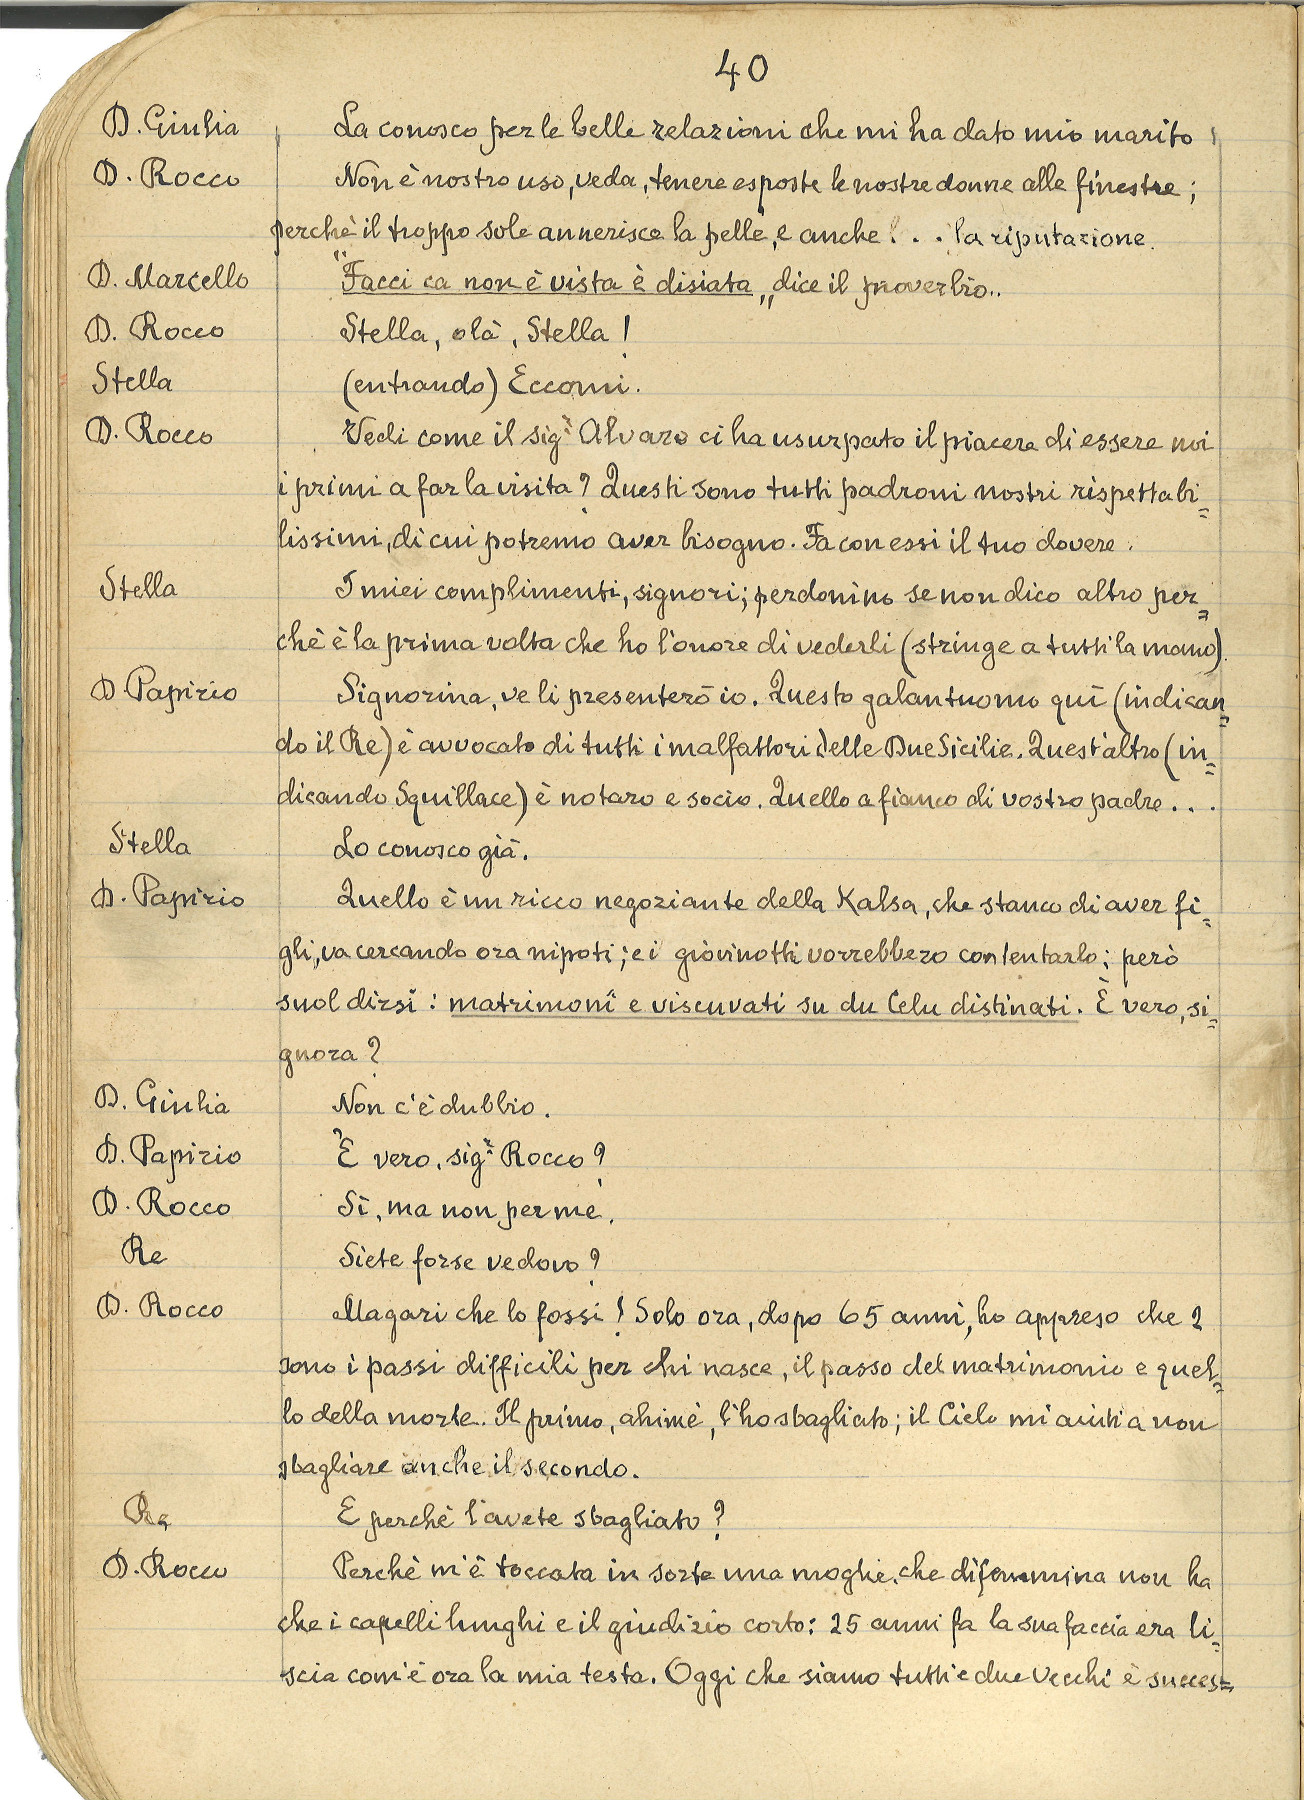 40
D. Giulia La conosco per le belle relazioni che mi ha dato mio marito
D. Rocco Non è nostro uso, veda, tenere esposte le nostre donne alle finestre;
perchè il troppo sole annerisce la pelle, e anche . . . la riputazione.
D. Marcello "Facci ca non è vista è disiata„ dice il proverbio..
D. Rocco Stella, olà, Stella!
Stella (entrando) Eccomi.
D. Rocco Vedi come il sigr Alvaro ci ha usurpato il piacere di essere noi
i primi a far la visita? Questi sono tutti padroni nostri rispettabi=
lissimi, di cui potremo aver bisogno. Fa con essi il tuo dovere.
Stella I miei complimenti, signori; perdonino se non dico altro per=
chè è la prima volta che ho l'onore di vederli (stringe a tutti la mano).
D Papirio Signorina, ve li presenterò io. Questo galantuomo quì (indican=
do il Re) è avvocato di tutti i malfattori delle Due Sicilie. Quest'altro (in=
dicando Squillace) è notaro e socio. Quello a fianco di vostro padre . . .
Stella Lo conosco già.
D. Papirio Quello è un ricco negoziante della Kalsa, che stanco di aver fi=
gli, va cercando ora nipoti; e i giovinotti vorrebbero contentarlo; però
suol dirsi: matrimonî e viscuvati su du Celu distinati. È vero, si=
gnora?
D. Giulia Non c'è dubbio.
D. Papirio È vero, sigr Rocco?
D. Rocco Sì, ma non per mè.
Re Siete forse vedovo?
D. Rocco Magari che lo fossi! Solo ora, dopo 65 anni, ho appreso che 2
sono i passi difficili per chi nasce, il passo del matrimonio e quel=
lo della morte. Il primo, ahimè, l'ho sbagliato; il Cielo mi aiuti a non
sbagliare anche il secondo.
Re E perchè l'avete sbagliato?
D. Rocco Perchè m'è toccata in sorte una moglie, che di femmina non ha
che i capelli lunghi e il giudizio corto: 25 anni fa la sua faccia era li=
scia com'è ora la mia testa. Oggi che siamo tutti e due vecchi è succes=